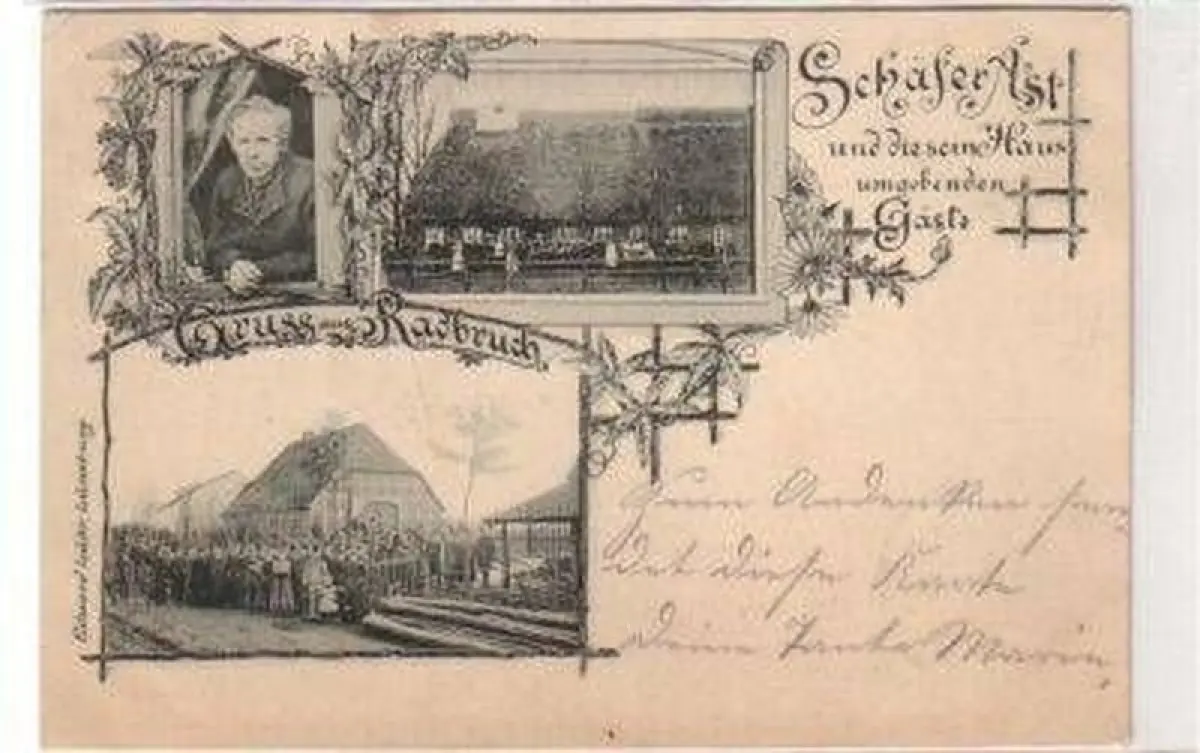 Schäfer Ast
und die sein Haus
umgebenden
Gäste
Gruss aus Radbruch
Zum Andenken sen
det diese Karte
Deine Tante Marie